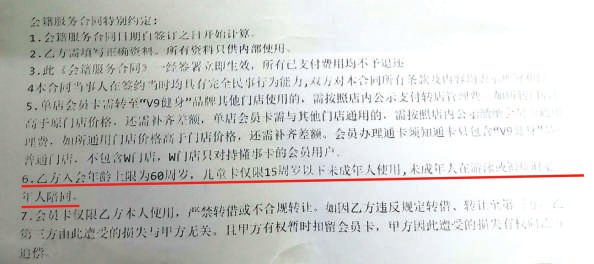 会籍服务合同特别约定：
1.会籍服务合同日期自签订之日开始计算。
2.乙方需填写正确资料。所有资料只供内部使用。
3.此《会籍服务合同》一经签署立即生效，所有已支付费用均不予退还
4本合同当事人在签约当时均具有完全民事行为能力,双方对本合同所有条款及内容均表示
5.单店会员卡需转至“V9健身”品牌其他门店使用的，需按照店内公示支付转店管理费，
高于原门店价格，还需补齐差额，单店会员卡需与其他门店通用的，需按照店内公示
理费，如所通用门店价格高于门店价格，还需补齐差额。会员办理通卡须知通卡只包含“V9健身”
普通门店，不包含W门店，W门店只对持懂事卡的会员用户。
6.乙方入会年龄上限为60周岁，儿童卡仅限15周岁以下未成年人使用,未成年人在游泳或
年人陪同。
7.会员卡仅限乙方本人使用，严禁转借或不合规转让。如因乙方违反规定转借、转让至第
第三方由此遭受的损失与甲方无关。且甲方有权暂时扣留会员卡，甲方因此遭受的损失有权向乙方
追偿。